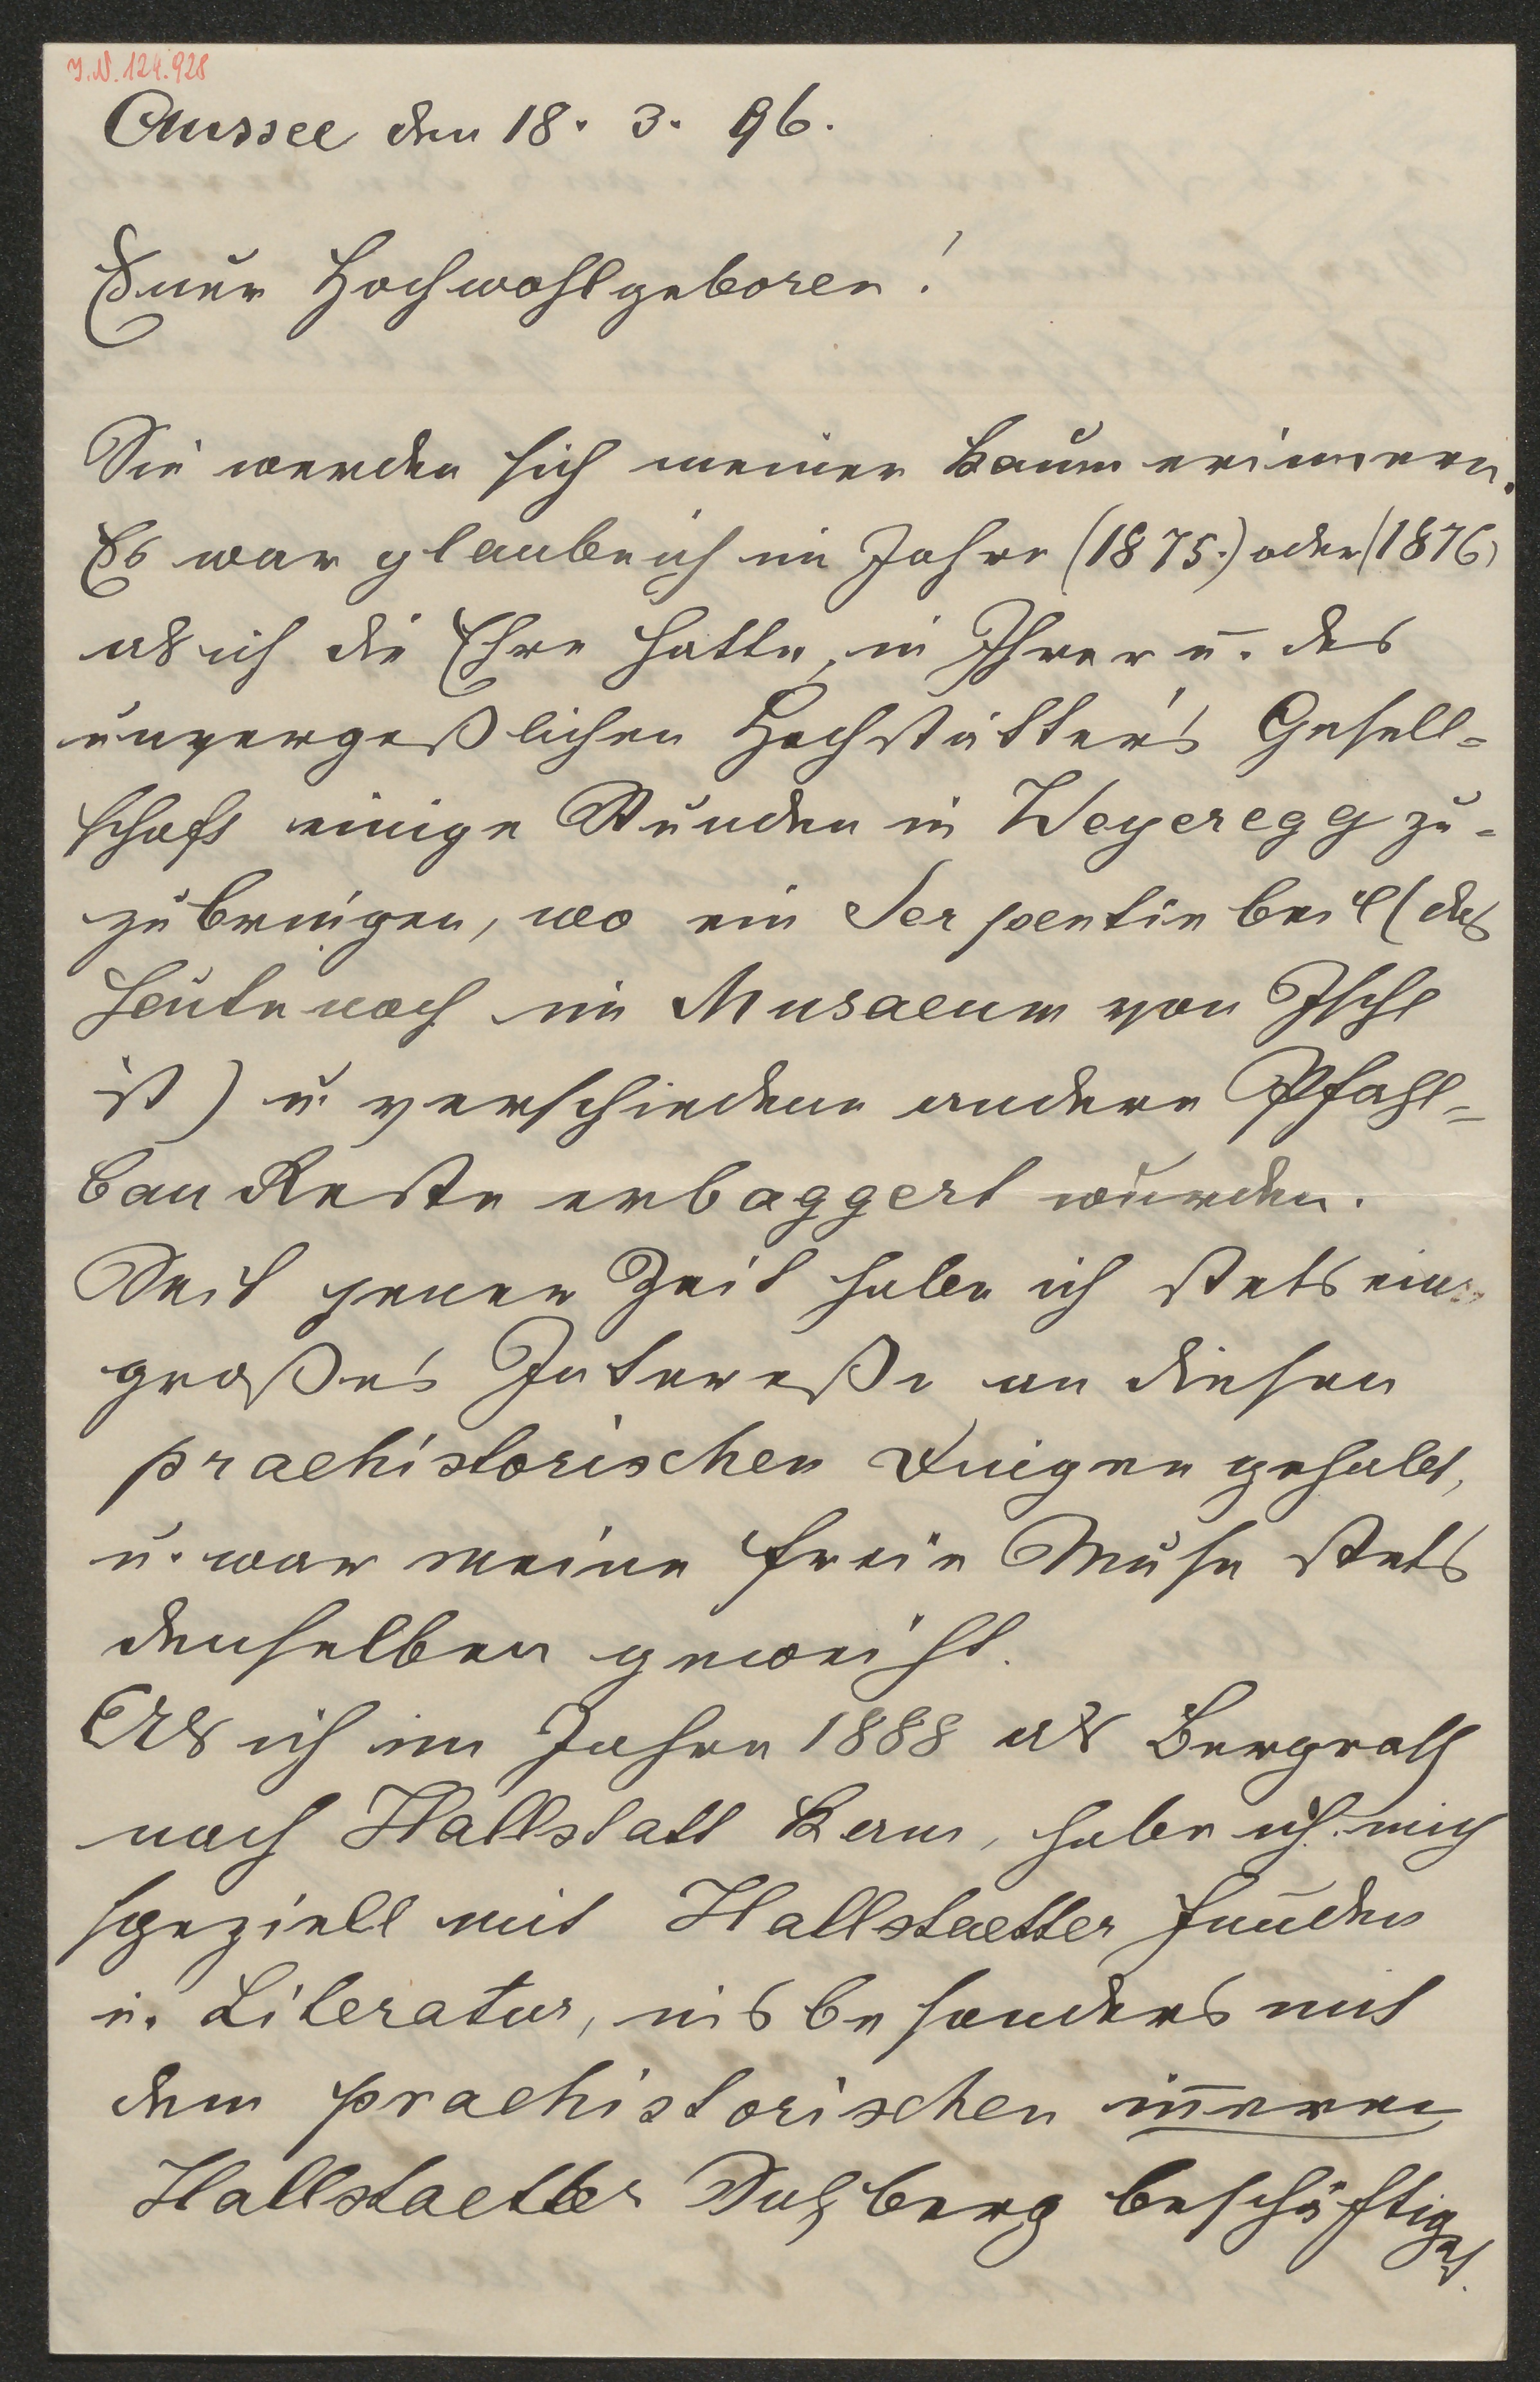 I.N. 124.928
Aussee den 18. 3. 96.
Euer Hochwohlgeboren!
Sie werden sich meiner kaum erinnern.
Es war glaube ich im Jahre (1875.) oder (1876)
als ich die Ehre hatte, in Ihrer u. des
unvergeßlichen Hochstätter's Gesell-
schaft einige Stunden in Weyeregg zu-
zubringen, wo ein Serpentinbeil (das
heute noch im Musaeum von Ischl
ist) u. verschiedene andere Pfahl-
bau Reste erbaggert wurden.
Seit jener Zeit habe ich stets ein
großes Intereße an diesen
praehistorischen Dingen gehabt,
u. war meine freie Muse stets
denselben geweiht.
Als ich im Jahre 1888 als Bergrath
nach Hallstatt kam, habe ich mich
speziell mit Hallstaetter Funden
u. Literatur, insbesonders mit
dem praehistorischen in̅eren
Hallstaetter Salzberg beschäftiget.